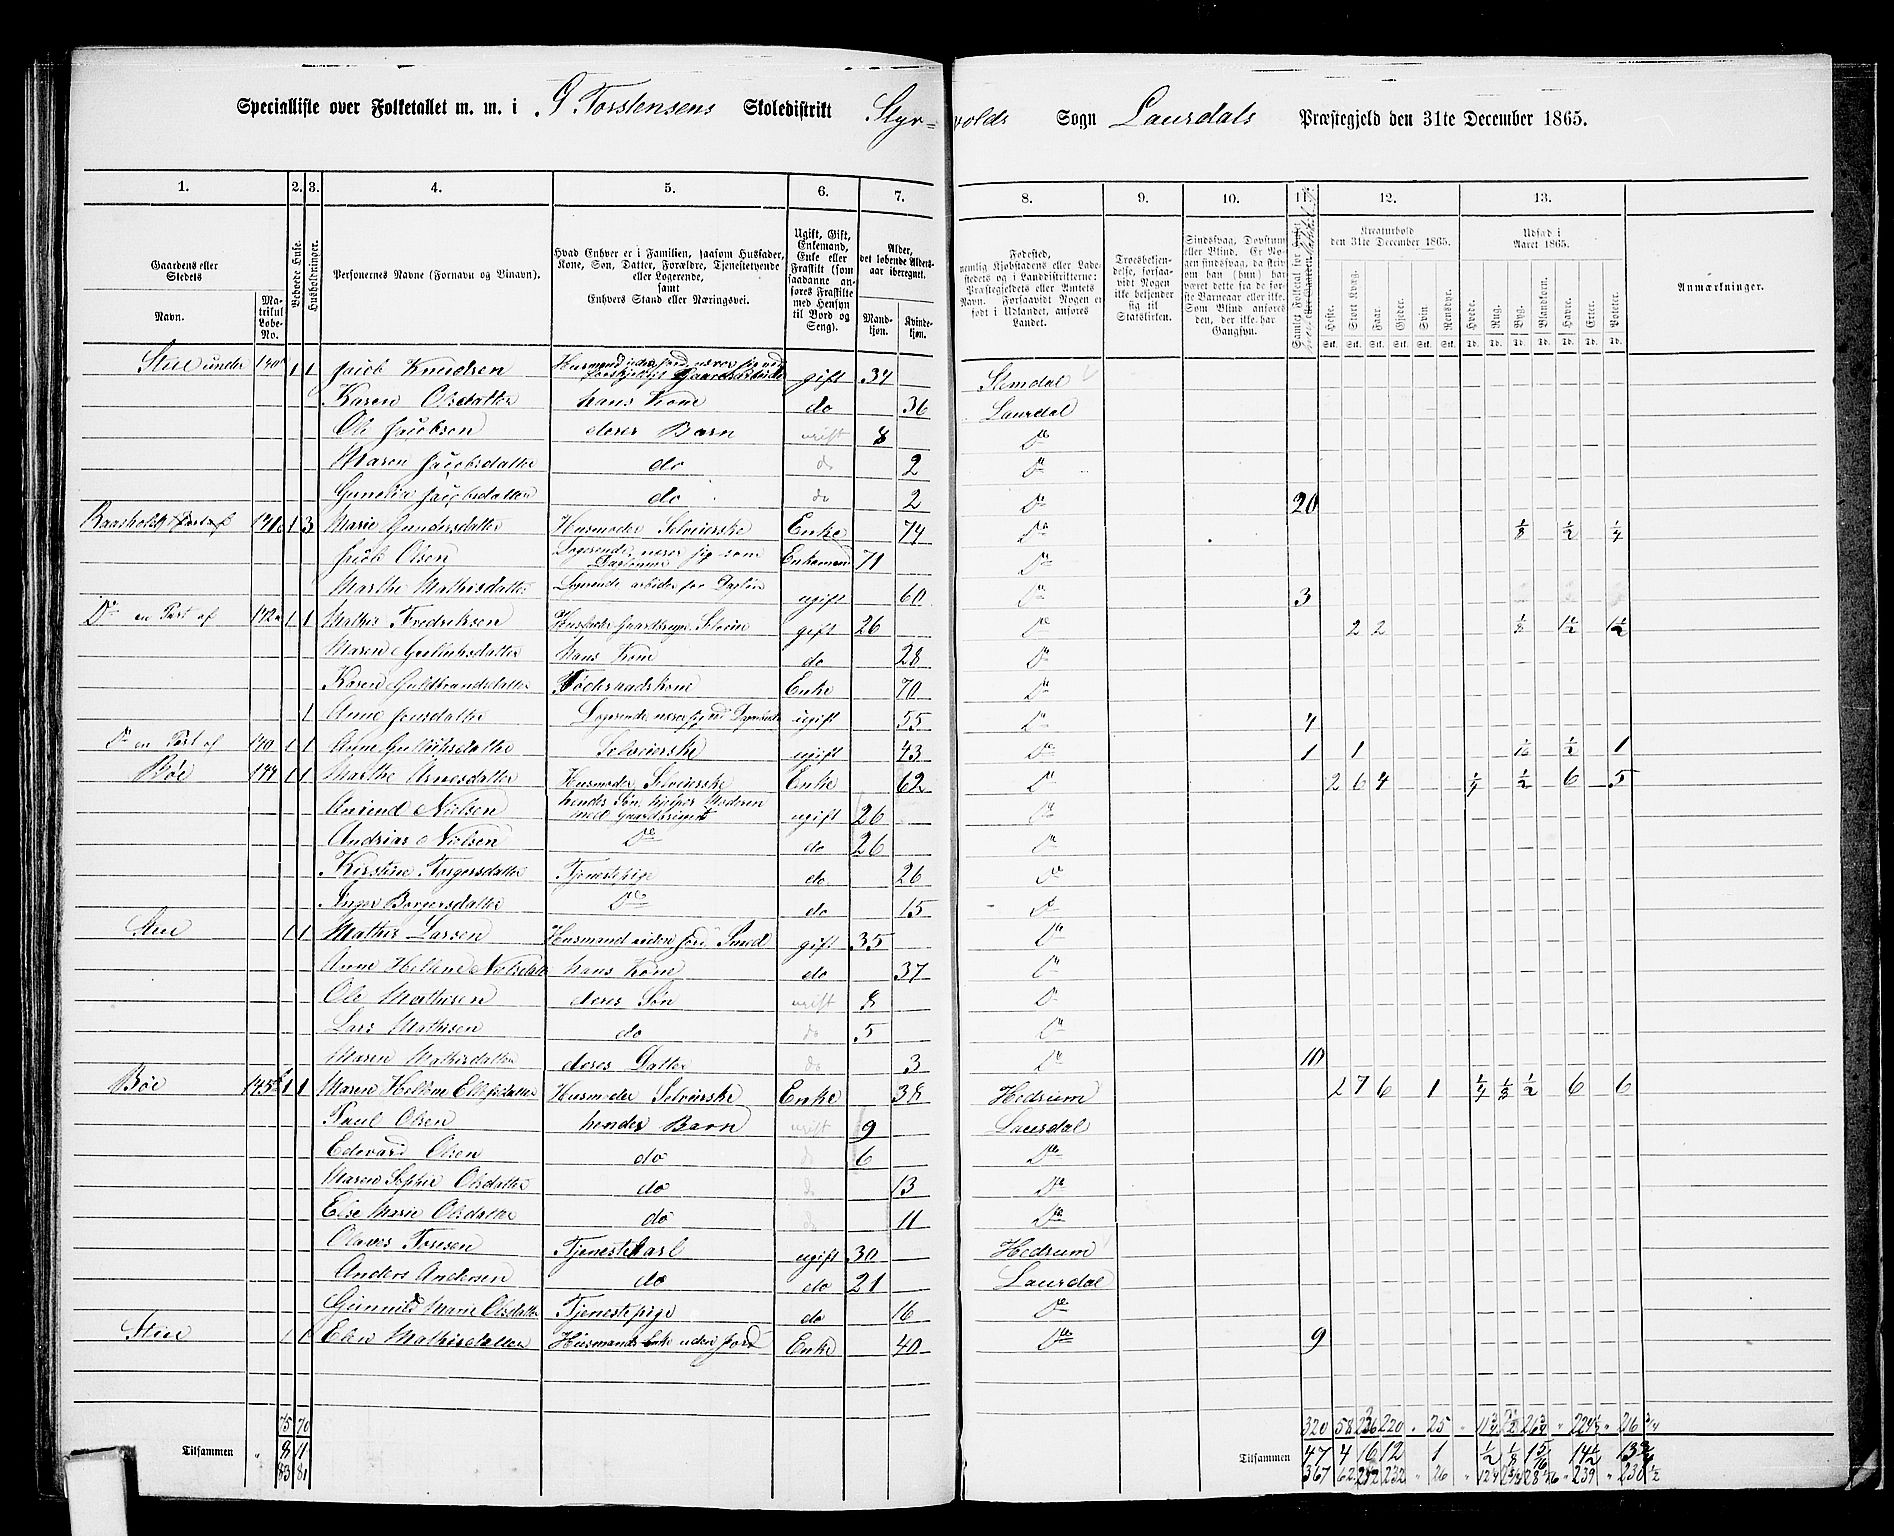 Specialliste over Folketallet m. m. i G. Torstensens Skoledistrikt Styr=volds Sogn Laurdals Præstegjeld den 31te December 1865.
1. 2. 3. 4. 5. 6. 7. 8. 9. 10. 11. 12. 13.
Gaardens eller Stedets Navn. Matrikul Løbe-No. Beboede Huse. Husholdninger. Personernes Navne (Fornavn og Tilnavn). Hvad Enhver er i Familien, saasom Husfader, Kone, Søn, Datter, Forældre, Tjenestetyende eller Logerende, samt Enhvers Stand eller Næringsvei. Ugift, Gift, Enkemand, Enke eller Fraskilt (som saadanne anføres Fraskilte med Hensyn til Bord og Seng). Alder, det løbende Aldersaar iberegnet. Mandkjøn. Kvindekjøn.
Fødested, nemlig Kjøbstadens eller Ladestedets og i Landdistrikterne: Præstegjeldets eller Amtets Navn. Forsaavidt Nogen er født i Udlandet, anføres Landet. Troesbekjendelse, forsaavidt Nogen ikke bekjender sig til Statskirken. Sindssvag, Døvstum eller Blind. Kreaturhold den 31te December 1865. Heste. Stort Kvæg. Faar. Gjeder. Svin. Rensdyr. Udsæd i Aaret 1865. Hvede. Rug. Byg. Blandkorn. Havre. Erter. Poteter. Anmærkninger.
Stue under 140 1 1 Jacob Knudsen gift 34 Slemdal
Karen Olsdatter hans Kone do 36 Laurdal
Ole Jacobsen deres Barn ugift 8 Do
Maren Jacobsdatter do do 2 Do
Gunelia Jacobsdatter do do 2 Do 20
1 3 Marie Gundersdatter Husmoder Selveierske Enke 74 Do 1/8 1/2 1/4
Jacob Olsen Logerende Enkemand 71 Do
Marthe Mathisdatter Logerende ugift 60 Do 3
Do en Part af 142a 1 1 Mathis Fredriksen Husfader Gaardbruger Selveier gift 26 Do 2 2 1/8 1 1/2 1 1/2
Maren Gulliksdatter hans Kone do 28 Do
Karen Guldbrandsdatter Føderaadskone Enke 70 Do
1 Anne Jensdatter Logerende ugift 55 Do 4
Do en Part af 140 1 1 Anne Gulliksdatter Selveierske ugift 43 Do 1 1 1/16 1/2 1
Bøe 144 1 1 Marthe Arnesdatter Husmoder Selveierske Enke 62 Do 2 6 4 1/4 1/2 6 5
Anvind Nielsen hendes Søn, hjelper Moderen med Gaardsbruget ugift 26 Do
Andrias Nielsen Do do 26 Do
Kirstine Torgersdatter Tjenestepige do 26 Do
Inger Borgersdatter Do do 15 Do
Stue 1 1 Mathis Larsen Husmand uden Jord Smed gift 35 Do
Anne Hellene Nielsdatter hans Kone do 37 Do
Ole Mathisen deres Søn ugift 8 Do
Lars Mathisen do do 5 Do
Maren Mathisdatter deres Datter do 3 Do 10
Bøe 145 1 1 Maren Hellene Ellefsdatter Husmoder Selveierske Enke 38 Hedrum 2 7 6 1 1/4 1/8 1/2 6 6
Paul Olsen hendes Barn ugift 9 Laurdal
Edevard Olsen do do 6 Do
Maren Sophie Olsdatter do do 13 Do
Else Marie Olsdatter do do 11 Do
Olaves Torsen Tjenestekarl ugift 30 Hedrum
Anders Andersen do do 21 Laurdal
Gunnild Marie Olsdatter Tjenestepige do 16 Do
Stue 1 1 Elen Mathisdatter Husmands Enke uden Jord Enke 40 Do 9
75 70 320 58 236 220 " 25 "
Tilsammen " 8 11 Tilsammen 47 4 16 12 1 1/2 1/8 14 1/2
83 81 367 62 252 232 " 26 " 239 " 230 1/2